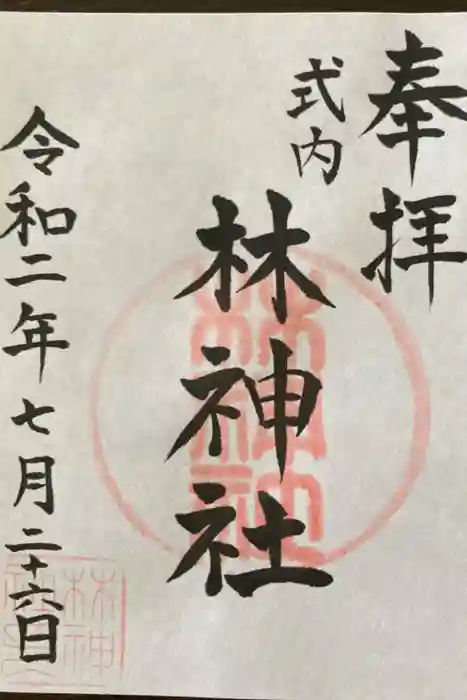 奉拝
式内
林神社
令和二年七月二十六日